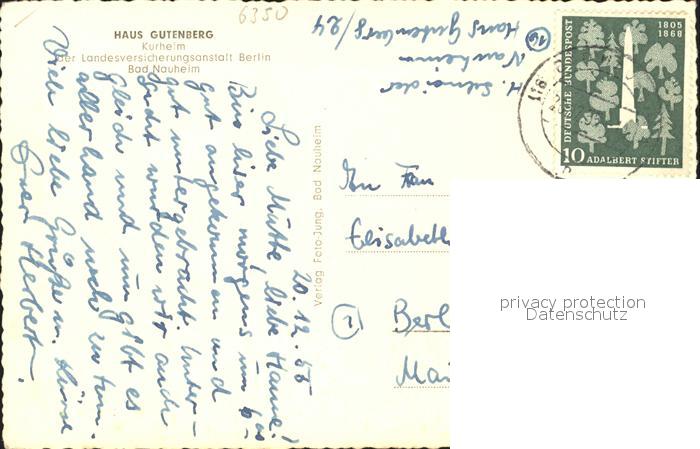 6350
HAUS GUTENBERG
Kurheim
der Landesversicherungsanstalt Berlin
Bad Nauheim
20.12.55
Liebe Mutti, liebe Hanne!
Bin hier morgens um 6 00
gut angekommen und
gut untergebracht. Unter-
sucht wurden wir auch
gleich und nun gibt es
allerhand noch zu tun.
Viele liebe Grüße u. Küsse
Euer Herbert.
Verlag Foto-Jung, Bad Nauheim
H.
Nauheim
Haus Gutenberg/24
16
An Frau
Elisabeth
1
Berl
Mai
DEUTSCHE BUNDESPOST
1805
1868
10 ADALBERT STIFTER
privacy protection
Datenschutz